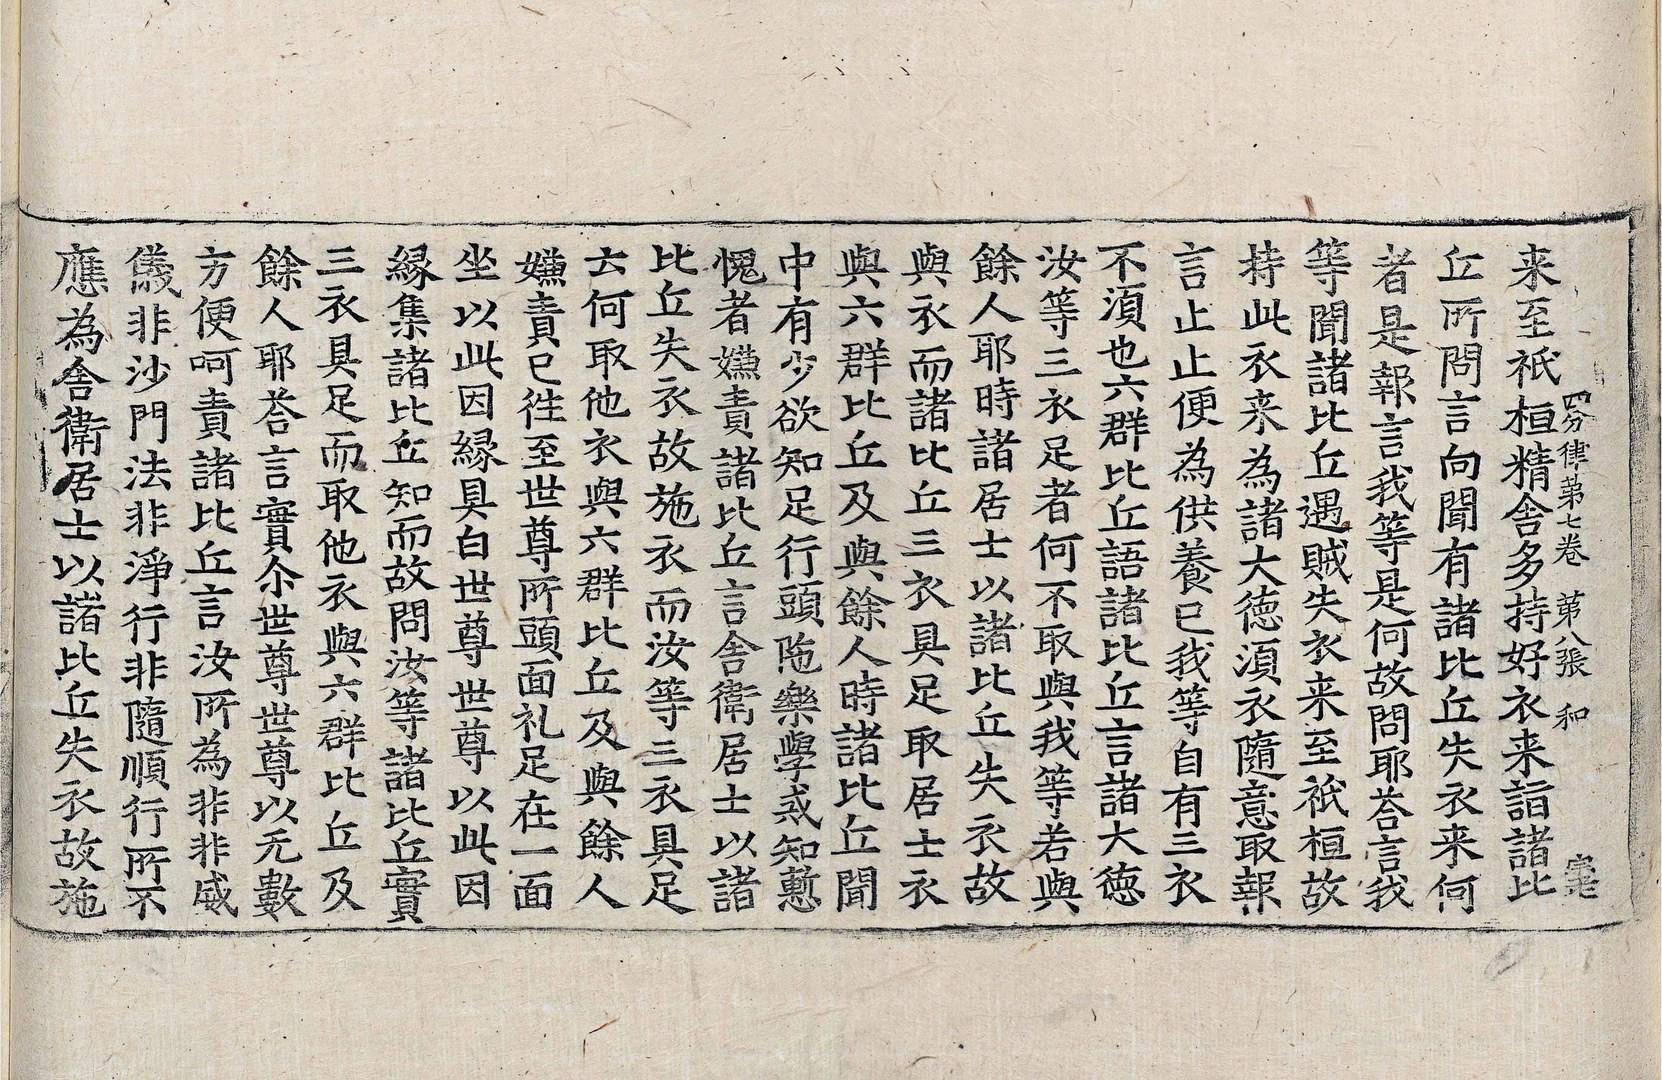 四分律第七卷 第八張 和
来至祇桓精舍多持好衣来詣諸比
丘所問言向聞有諸比丘失衣来何
者是報言我等是何故問耶荅言我
等聞諸比丘遇賊失衣来至祇桓故
持此衣来為諸大德須衣隨意取報
言止止便為供養已我等自有三衣
不須也六群比丘語諸比丘言諸大德
汝等三衣足者何不取與我等若與
餘人耶時諸居士以諸比丘失衣故
與衣而諸比丘三衣具足取居士衣
與六群比丘及與餘人時諸比丘聞
中有少欲知足行頭陁樂學戒知慙
愧者嫌責諸比丘言舍衛居士以諸
比丘失衣故施衣而汝等三衣具足
云何取他衣與六群比丘及與餘人
嫌責已徃至世尊所頭面礼足在一面
坐以此因縁具白世尊世尊以此因
縁集諸比丘知而故問汝等諸比丘實
三衣具足而取他衣與六群比丘及
餘人耶荅言實尒世尊世尊以无數
方便呵責諸比丘言汝所為非非威
儀非沙門法非淨行非隨順行所不
應為舍衛居士以諸比丘失衣故施